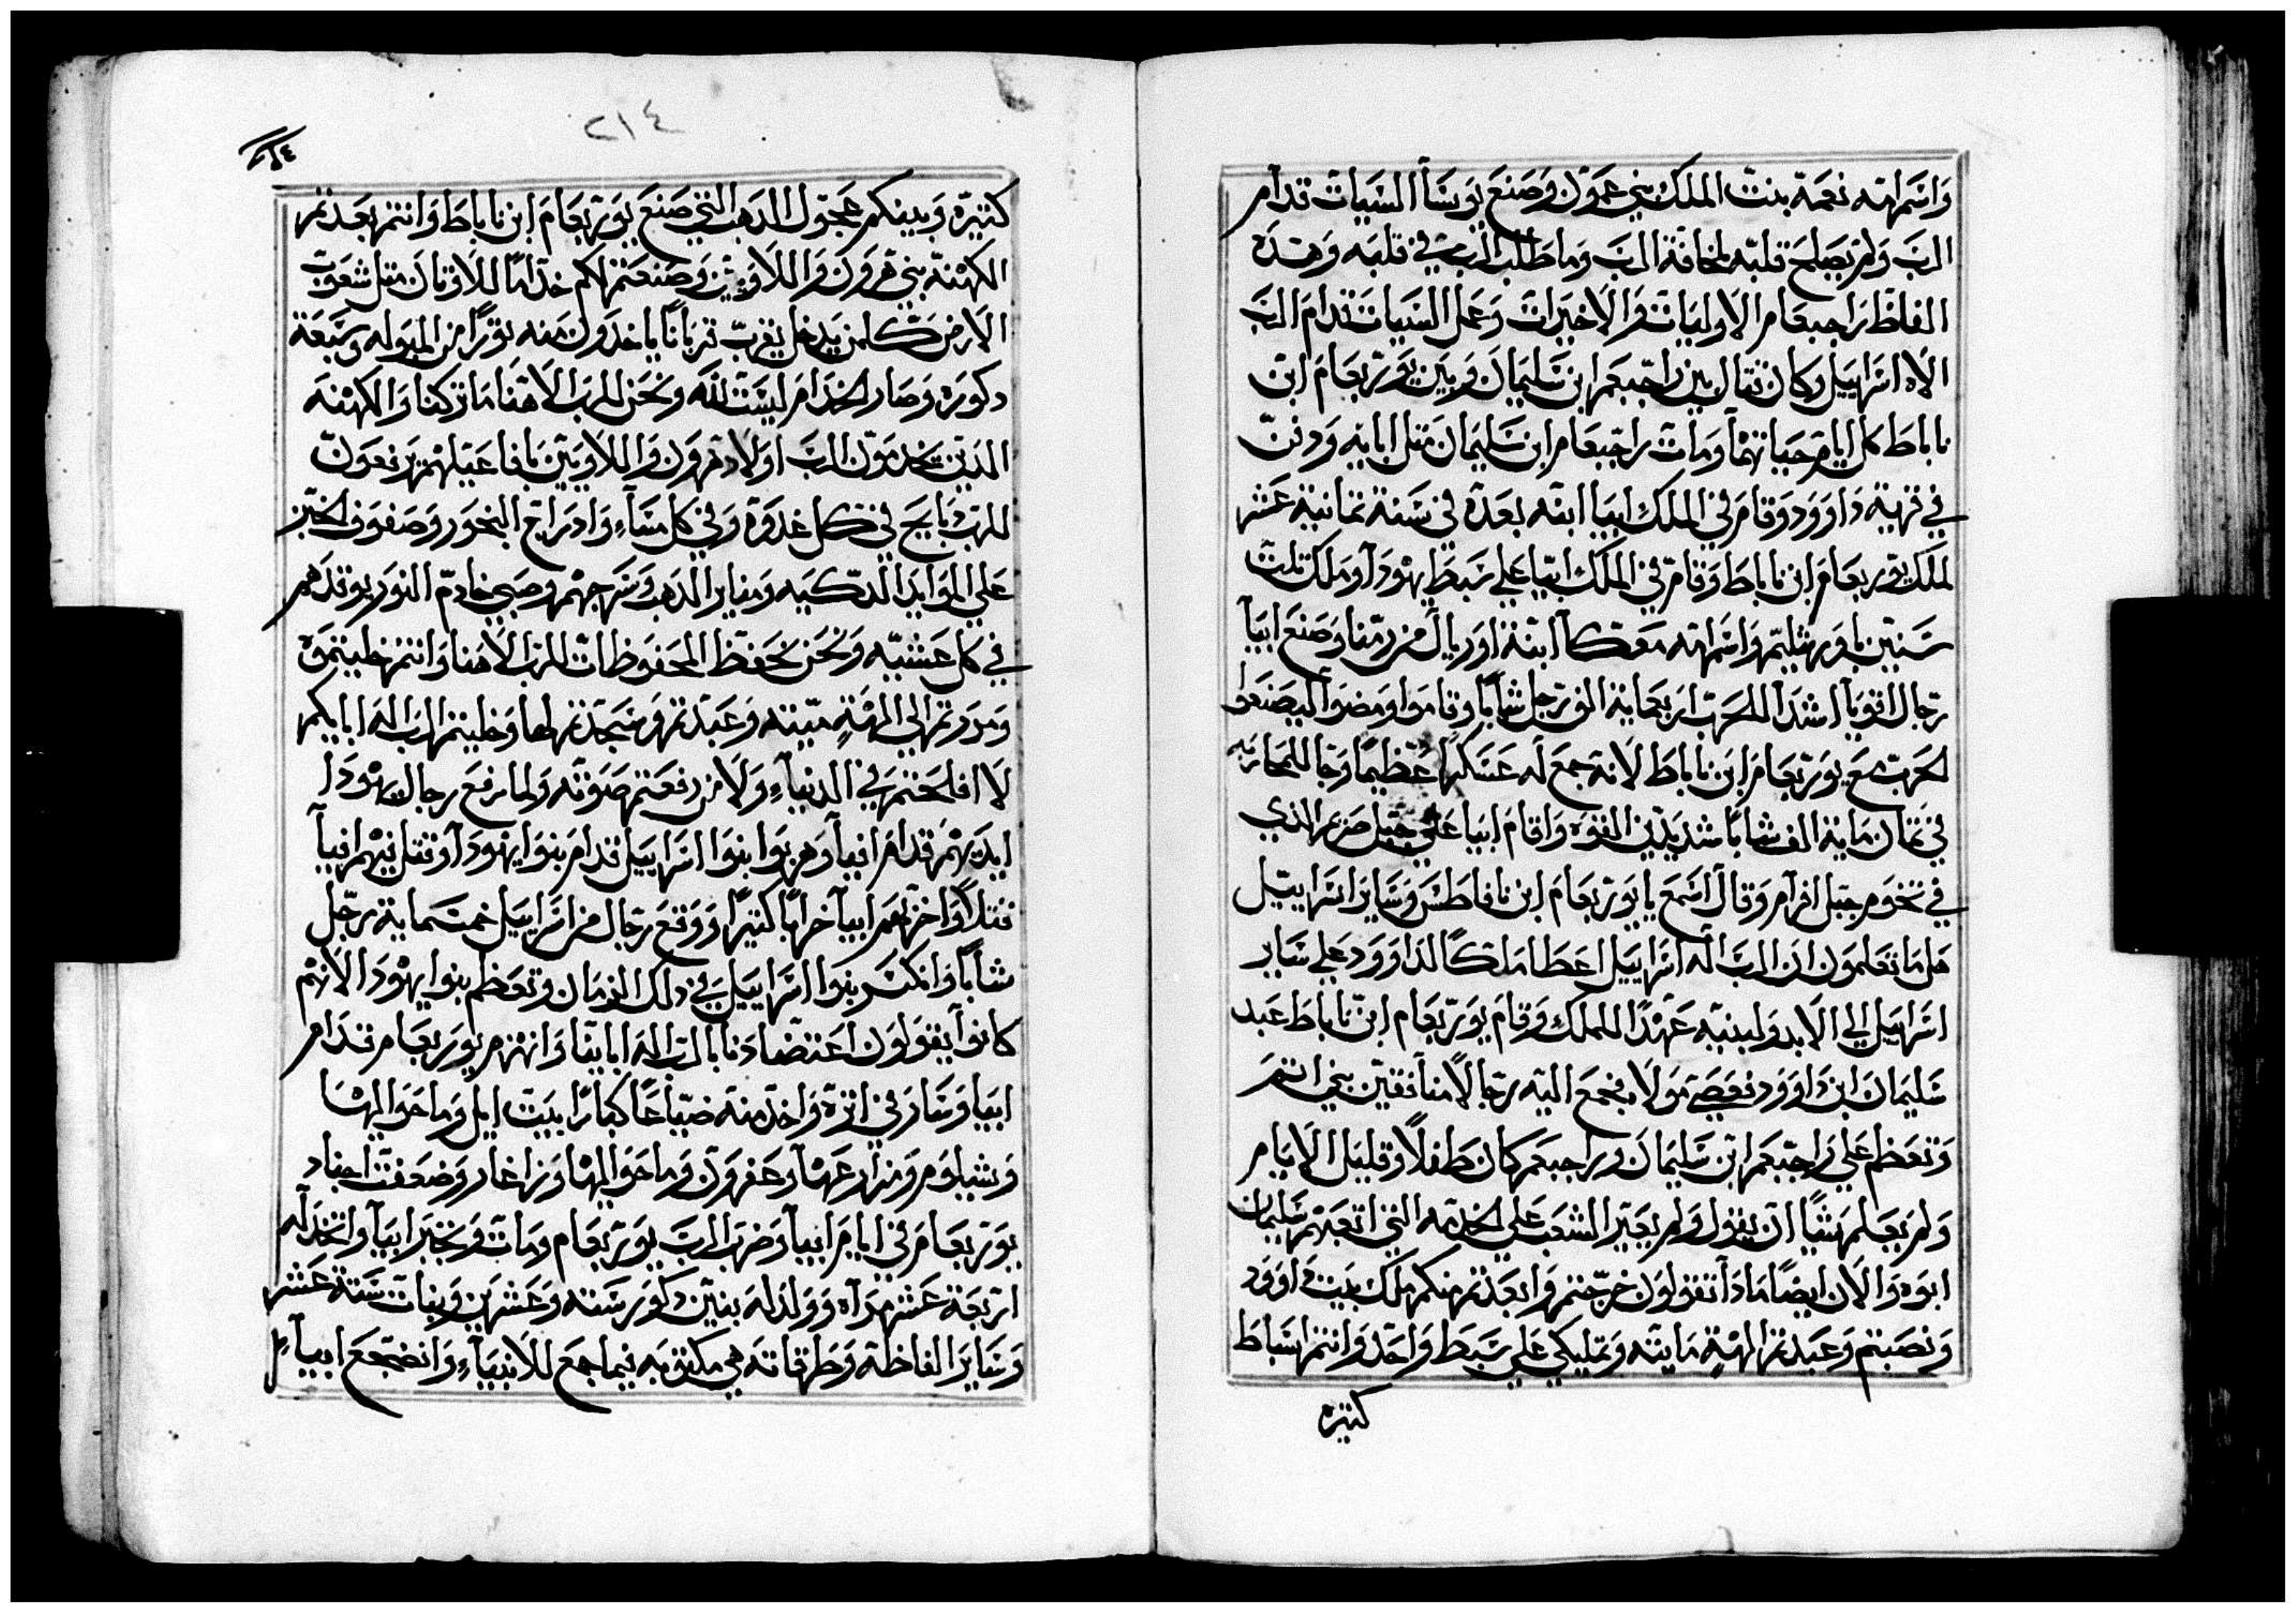 واسم امه نعمة بنت الملك بني عمون وصنع يوسا السيات قدام
الرب ولم يصلح قلبه لمخافة الرب وما طلب الرب في قلبه وهذه
الفاظ راجبعام الاوليات والاخيرات وعمل السيات قدام الرب
الاه اسراييل وكان قتال بين راجبعم ابن سليمان وبين يوربعام ابن
ناباط كل ايام حياتهما ومات راجبعام ابن سليمان مثل ابايه ودفن
في قرية داوود وقام في الملك ابيا ابنه بعده في سنة ثمانية عشر
لملك يوربعام ابن ناباط وقام في الملك ابيا علي سبط يهودا وملك ثلث
سنين باورشليم واسم امه معكا ابنة اوريال من رمتا وصنع ابيا
رجال اقويا اشدا للحرب اربعماية الف رجل شابا وقاموا ومضوا ليصنعوا
الحرب مع يوربعام ابن ناباط لانه جمع له عسكرا عظيما وجا للمحاربه
في ثمان ماية الف شابا شديدين القوه واقام ابيا علي جبل صرعر الذي
في تخوم جبل افرام وقال اسمع يا يوربعام ابن نافاطس وساير اسراييل
هل ما تعلمون ان الرب اله اسراييل اعطا ملكا لداوود علي ساير
اسراييل الي الابد ولبنيه عهدا للملك وقام يوربعام ابن ناباط عبد
سليمان ابن داوود فعصي مولاه فجمع اليه رجالا منافقين بني اثم
وتعظم علي راجبعم ابن سليمان وراجبعم كان طفلا وقليل الايام
ولم يعلم شيا ان يقول ولم يعير الشعب علي الخدمه التي اتعبهم سليمان
ابوه والان ايضا ماذا تقولون خرجتم وابعدتم منكم ملك بيت داوود
ونصبتم وعبدتم الهة مايته وتمليكي علي سبط واحد وانتم اسباط
كثيره
٢١٤
كثيره وبينكم عجول الذهب التي صنع يوربعام ابن ناباط وانتم بعدتم
الكهنة بني هرون واللاويين وصنعتم لكم خداما للاوثان مثل شعوب
الارض كلمن يدخل يقرب قربانا ياخذون منه ثورا من البقوله وسبعة
دكوره وصار الخدام ليست لله ونحن للرب الاهنا ما تركنا والكهنه
الدين يخدمون الرب اولاد هرون واللاويين بافاعيلهم يرفعون
للرب دبايح في كل غدوة وفي كل مساء وادراج البخور وصفوف الخبز
علي الموايد الدكيه ومناير الذهب وسرجهم وصبي خادم النور يوقدهم
في كل عشيه ونحن نحفظ المحفوظات للرب الاهنا وانتم خليتموه
ومردتم الي الهة ميته وعبدتم وسجدتم لها وخليتم الرب اله ابايكم
لا افلحتم في الدنياء ولا من رفعتم صوته ولما رفع رجال يهودا
ايديهم قدام ابيا وهربوا بنوا اسراييل قدام بنوا يهودا وقتل فيهم ابيا
قتلا واخربهم ابيا خرابا كثيرا ووقع رجال من اسراييل خمسماية رجل
شابا وانكسر بنوا اسراييل في ذلك الزمان وتعظم بنوا يهودا لانهم
كانوا يقولون اعتضادنا بالرب اله اباينا وانهزم يوربعام قدام
ابيا وسار في اثره واخذ منه ضياعا كبارا بيت ايل وما حواليها
وشيلوم ومزارعها وعفرون وما حواليها ومزارعها وضعفت اجناد
يوربعام في ايام ابيا وضرب الرب يوربعام ومات وتجبر ابيا واتخذ له
اربعة عشر مراه وولد له بنين دكور سته وعشرين وبنات ستة عشر
وساير الفاظه وطرقاته هي مكتوبه فيما جمع للانبياء وانضجع ابيا